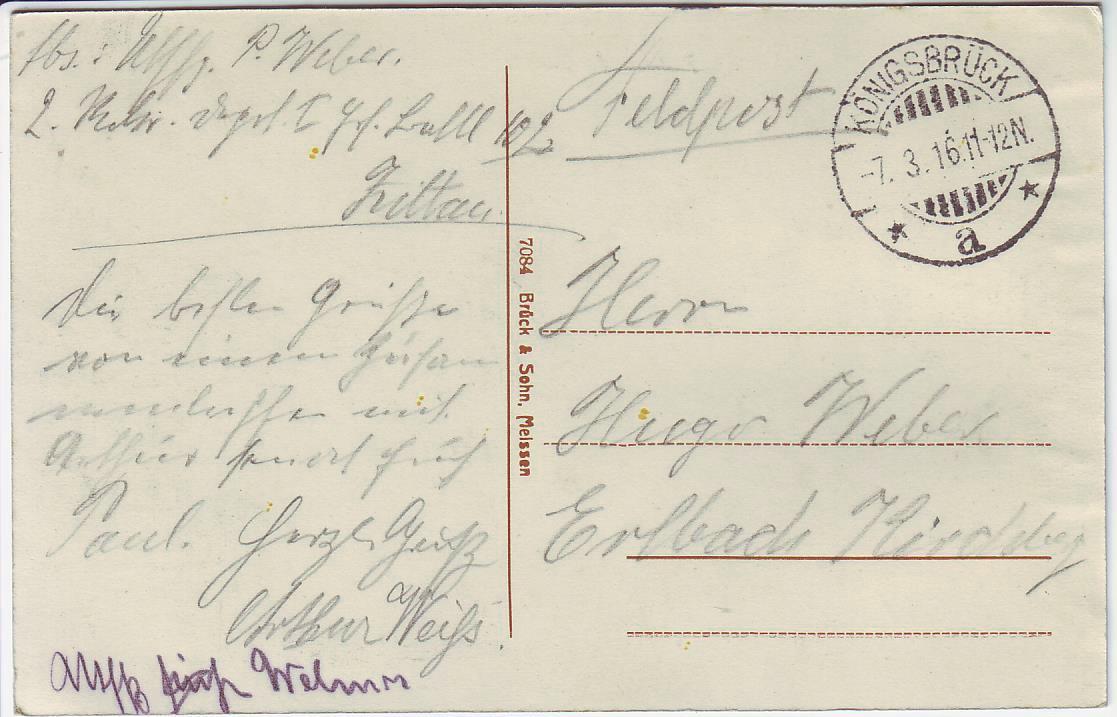 Abs.: Uffz. P. Weber.
2. Rekr. Depot I Ers. Batl 102
Zittau.
Die besten Grüße
von einem Zusam
mentreffen mit
Arthur sendet Euch
Paul. Herzl. Gruß
Arthur Weiß.
Uffz
Feldpost
KÖNIGSBRÜCK
-7. 3. 16. 11-12N.
* a *
7084 Brück & Sohn, Meissen
Herrn
Hugo Weber
Erlbach Kirchberg